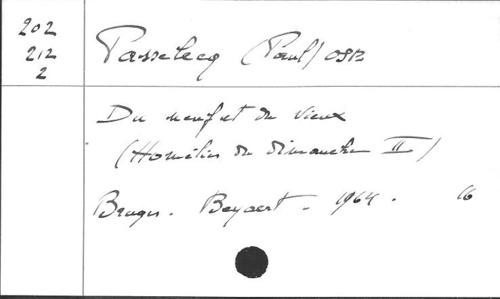 202
212
2
Passelecq (Paul) OSB
Du neuf et du vieux
(Homélies du dimanche II)
Bruges. Beyaert. 1964. 16